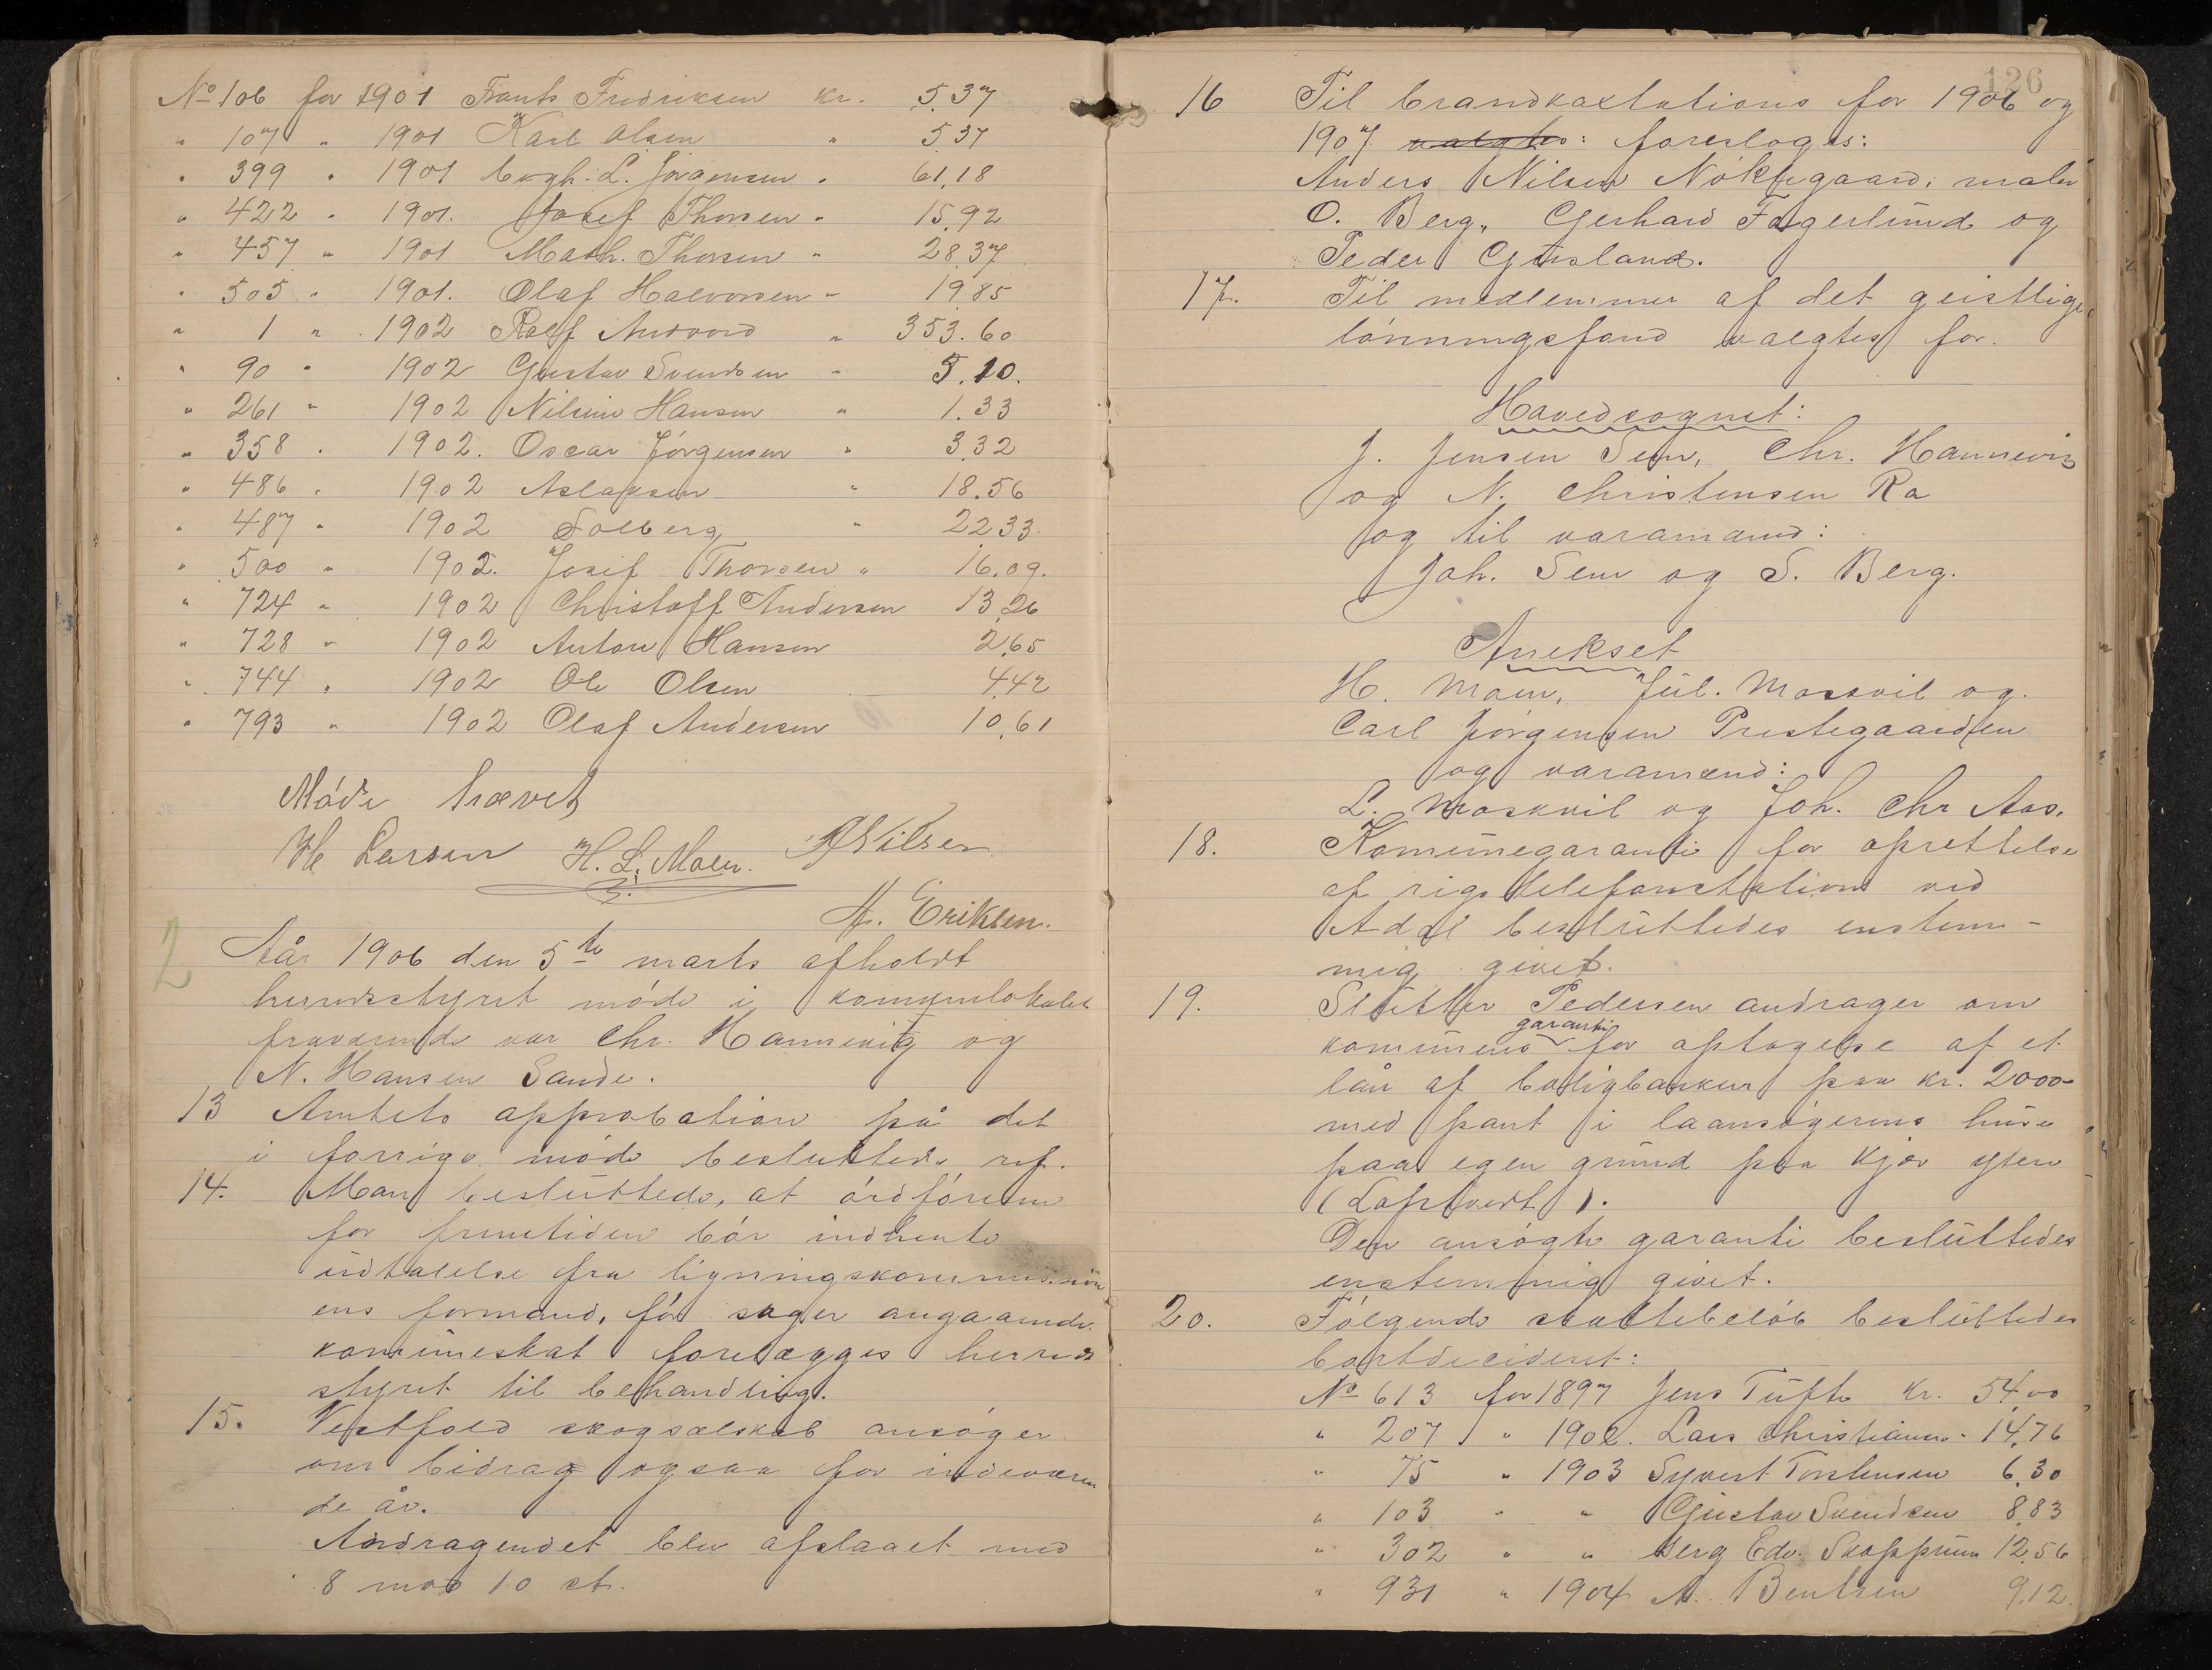 No 106 for 1901 Frants Fredriksen kr. 5.37
" 107 " 1901 Karl Olsen " 5.37
" 399 " 1901 L. Jørgensen " 61,18
" 422 " 1901. Josef Thorsen " 15,92
" 457 " 1901 Math. Thorsen " 28,37
" 505 " 1901. Olaf Halvorsen " 19,85
" 1 " 1902 Rolf Andvord " 353.60
" 90 " 1902 Gustav Svendsen " 5.10.
" 261 " 1902 Nilsine Hansen " 1.33
" 358 " 1902. Oscar Jörgensen " 3,32
" 486 " 1902 Aslaksen " 18.56
" 487 " 1902 Solberg " 22,33
" 500 " 1902. Josef Thorsen " 16.09.
" 724 " 1902 Christoff Andersen 13,26
" 728 " 1902 Anton Hansen 2,65
" 744 " 1902 Ole Olsen 4,42
" 793 " 1902 Olaf Andersen 10,61
Møde hævet
Larsen H. L. Moen. A Nilsen
A. Eriksen.
2
Aår 1906 den 5te marts afholdt
herredsstyret möde i komunelokalet
fraværende var Chr. Hannevig og
N. Hansen Sande.
13 Amtets approbation på det
i forrige möde besluttede ref.
14. Man besluttede, at ordföreren
for fremtiden bör indhente
udtalelse fra ligningskommission
ens formand, för sager angaaende
komuneskat forelægges herreds
styret til behandling.
15. Vestfold skogselskab ansöger
om bidrag ogsaa for indeværen
de år.
Andragendet blev afslaaet med
8 mod 10 st.
126
16 Til brandtakstations for 1906 og
1907 valgtes: foresloges:
Anders Nilsen Nøklegaard, maler
O. Berg, Gerhard Fagerlund og
Peder Gusland.
17. Til medlemmer af det geistlige
lönningsfond valgtes for.
Hovedsognet:
J. Jensen Sem, Chr. Hannevig
og N. Christensen Ra
og til varamænd:
Joh. Sem og S. Berg.
Anekset
H. Moen, Jul. Moskvil og
Carl Jörgensen Prestegaarden
og varamænd:
L. Moskvil og Joh. Chr Aas.
18. Komunegaranti for oprettelse
af rigstelefonstation ved
Adal besluttedes enstem-
mig givet.
19. Slutter Pedersen andrager om
komunens garanti for optagelse af et
lån af boligbanken paa kr. 2000
med pant i laansögerens huse
paa egen grund paa Kjør
.
Den ansögte garanti besluttedes
enstemmig givet.
20. Fölgende skattebelöb besluttedes
bortdecideret:
No 613 for 1897 Jens Tufte kr. 54,00
" 207 " 1902. Lars Christiansen " 14,76
" 75 " 1903 Syvert Torstensen 6,30
" 103 " " Gustav Svendsen 8,83
" 302 " " Berg Edv. Skoppum 12,56
" 931 " 1904 A. Bentsen 9,12.